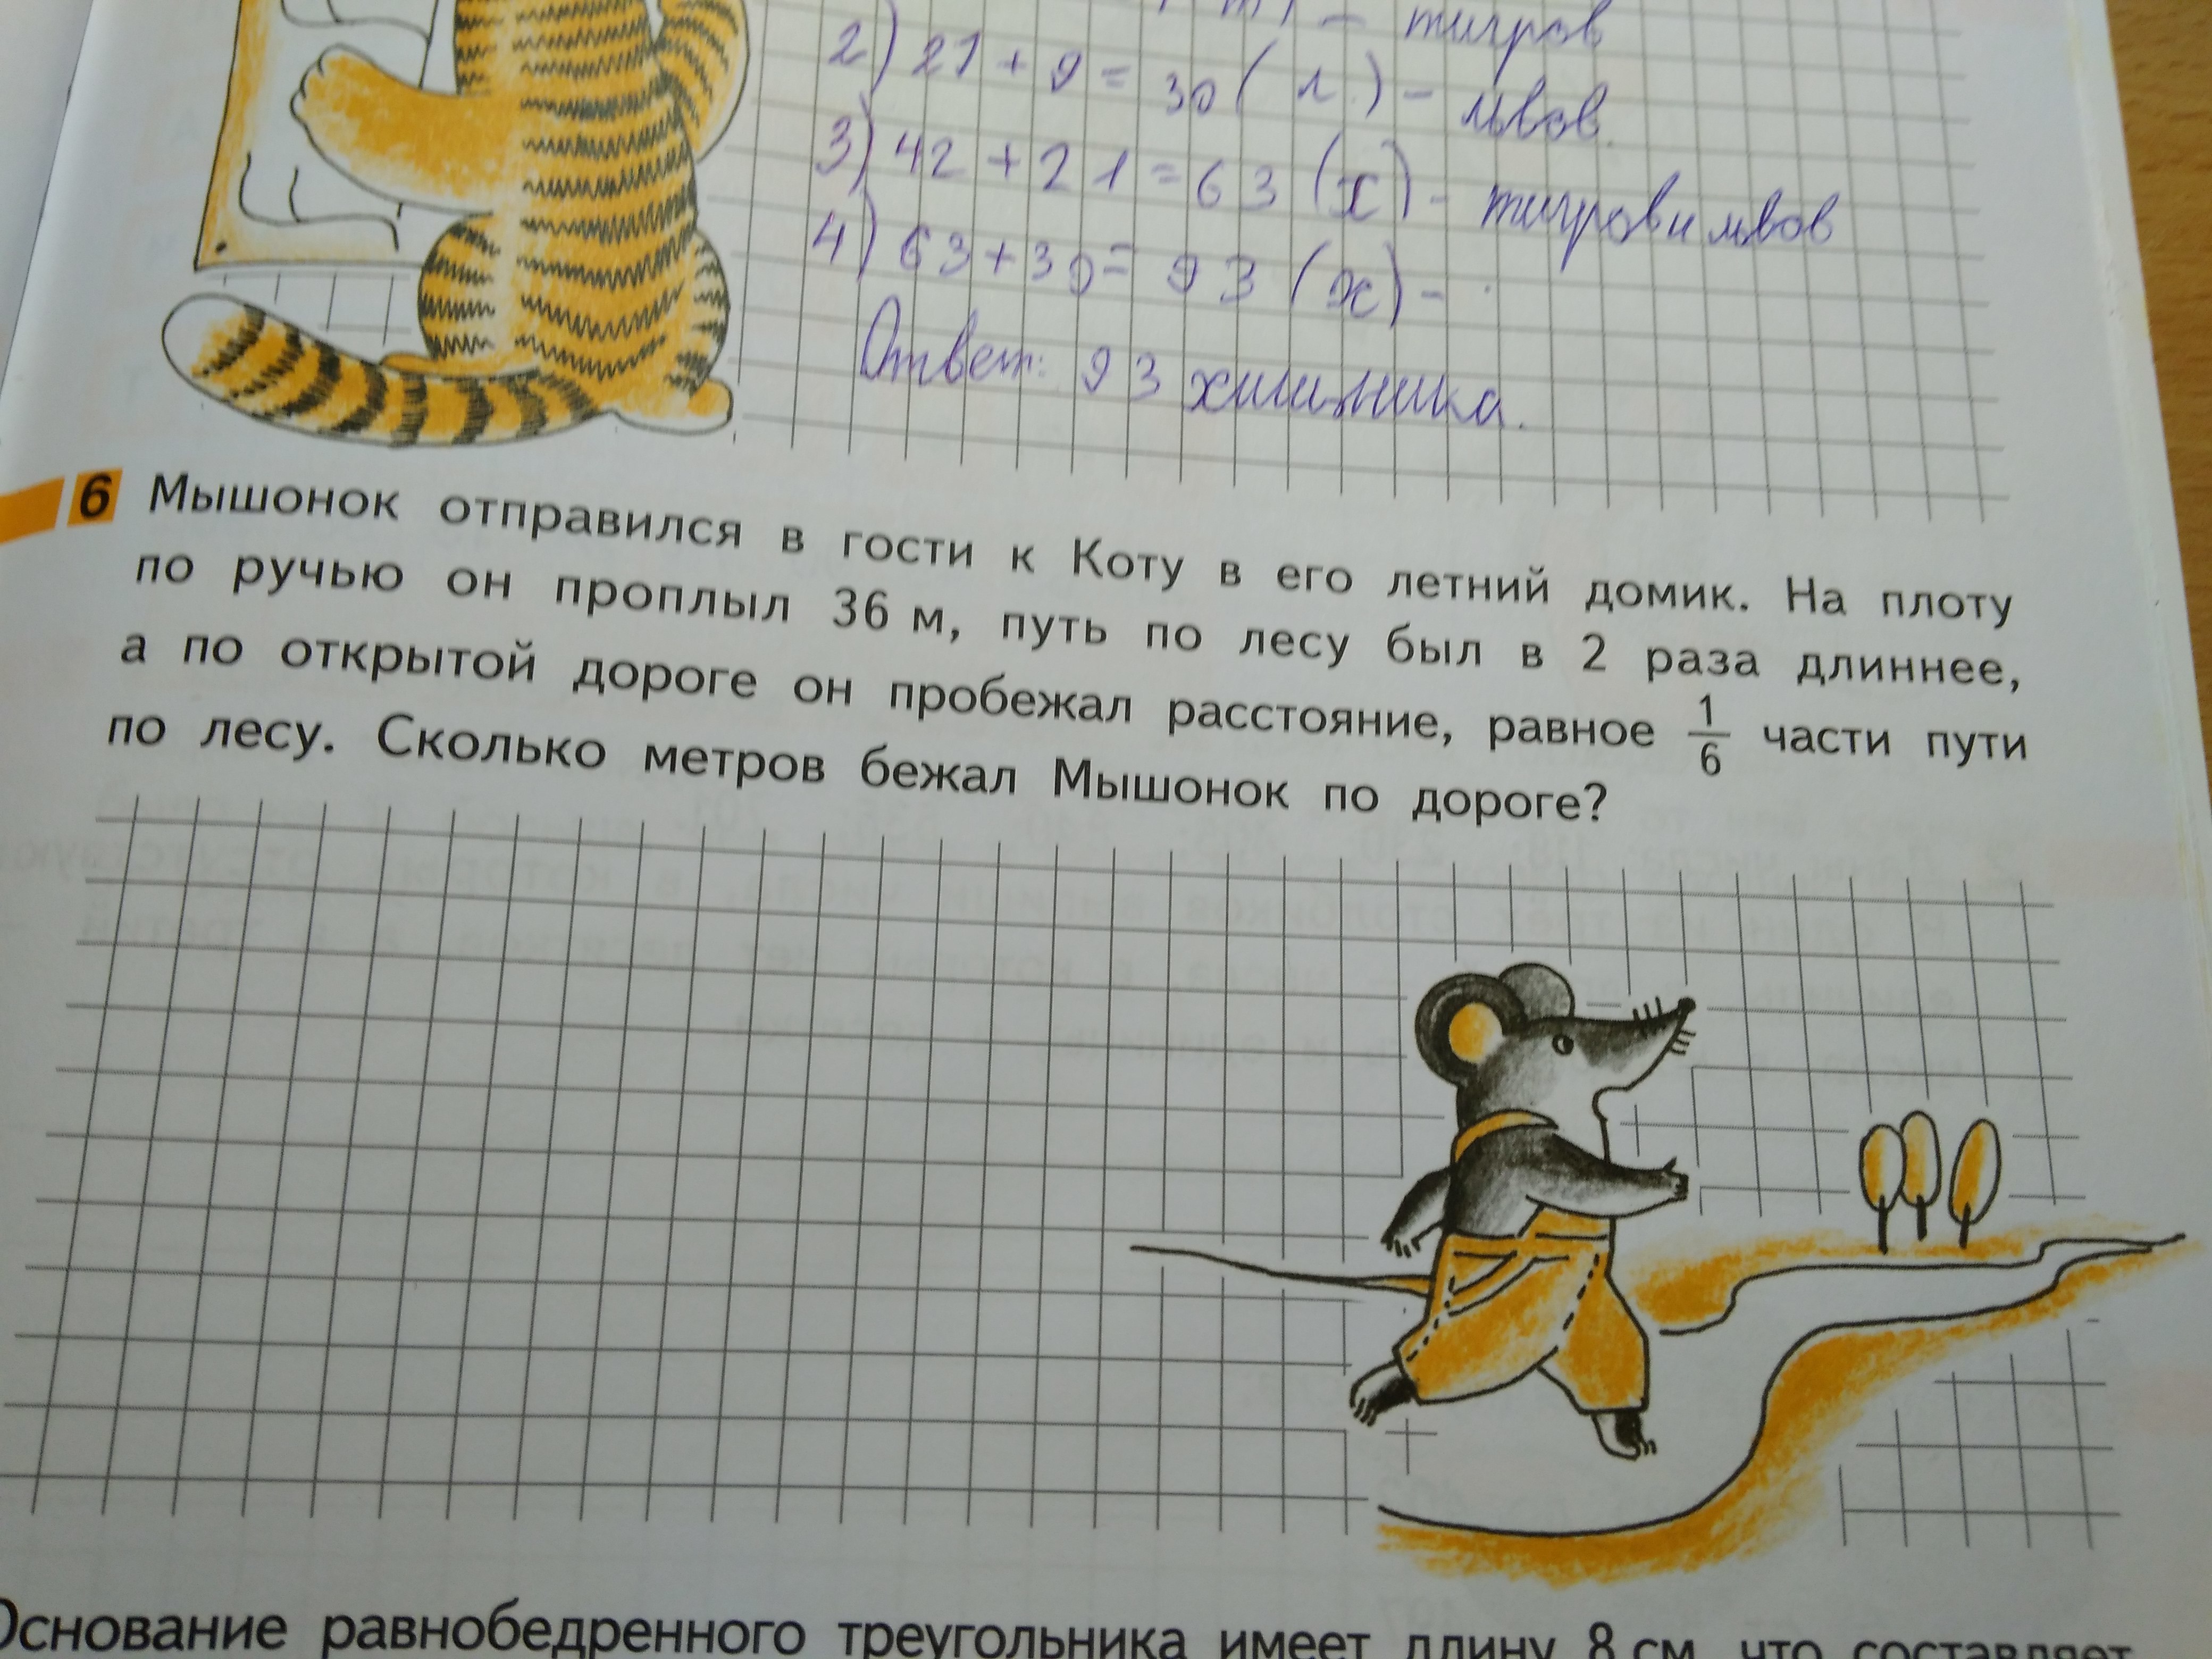 – тигров
2) 21 + 9 = 30 ( л.) – львов.
3) 42 + 21 = 63 (х) – тигров и львов
4) 63 + 30 = 93 (х) –
Ответ: 93 хищника.
6 Мышонок отправился в гости к Коту в его летний домик. На плоту
по ручью он проплыл 36 м, путь по лесу был в 2 раза длиннее,
а по открытой дороге он пробежал расстояние, равное 1/6 части пути
по лесу. Сколько метров бежал Мышонок по дороге?
Основание равнобедренного треугольника имеет длину 8 см, что составляет